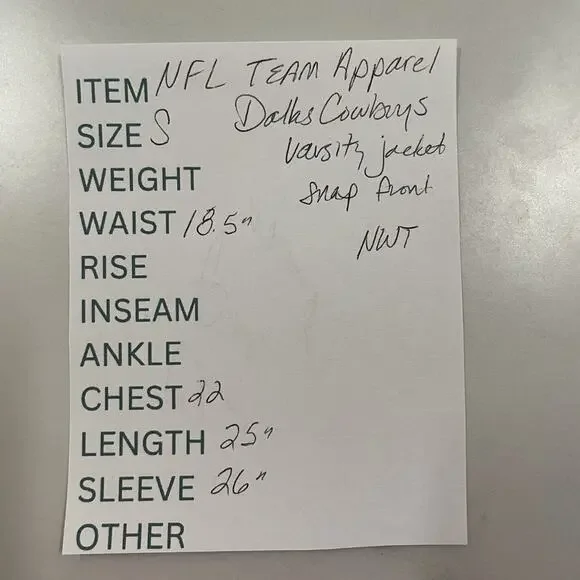 ITEM NFL TEAM Apparel
SIZE S Dallas Cowboys
Varsity jacket
WEIGHT snap front
WAIST 18.5"
NWT
RISE
INSEAM
ANKLE
CHEST 22
LENGTH 25"
SLEEVE 26"
OTHER